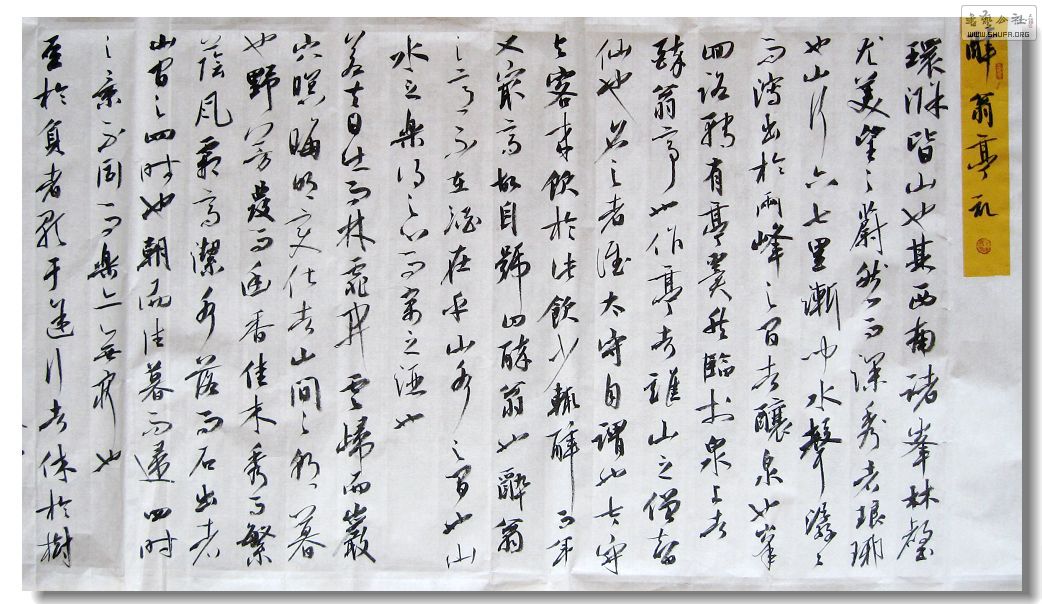 醉翁亭記
環滁皆山也其西南諸峯林壑
尤美望之蔚然而深秀者琅琊
也山行六七里漸聞水聲潺々
而瀉出於兩峰之間者釀泉也峯
回路轉有亭翼然臨於泉上者
醉翁亭也作亭者誰山之僧智
仙也名之者誰太守自謂也太守
與客來飲於此飲少輒醉而年
又最高故自號曰醉翁也醉翁
之意不在酒在乎山水之間也山
水之樂得之心而寓之酒也
若夫日出而林霏開雲歸而巖
穴暝晦明變化者山間之朝暮
也野芳發而幽香佳木秀而繁
蔭風霜高潔水落而石出者
山間之四時也朝而往暮而歸四時
之景不同而樂亦無窮也
至於負者歌于途行者休於樹
書藝公社
WWW.SHUFA.ORG